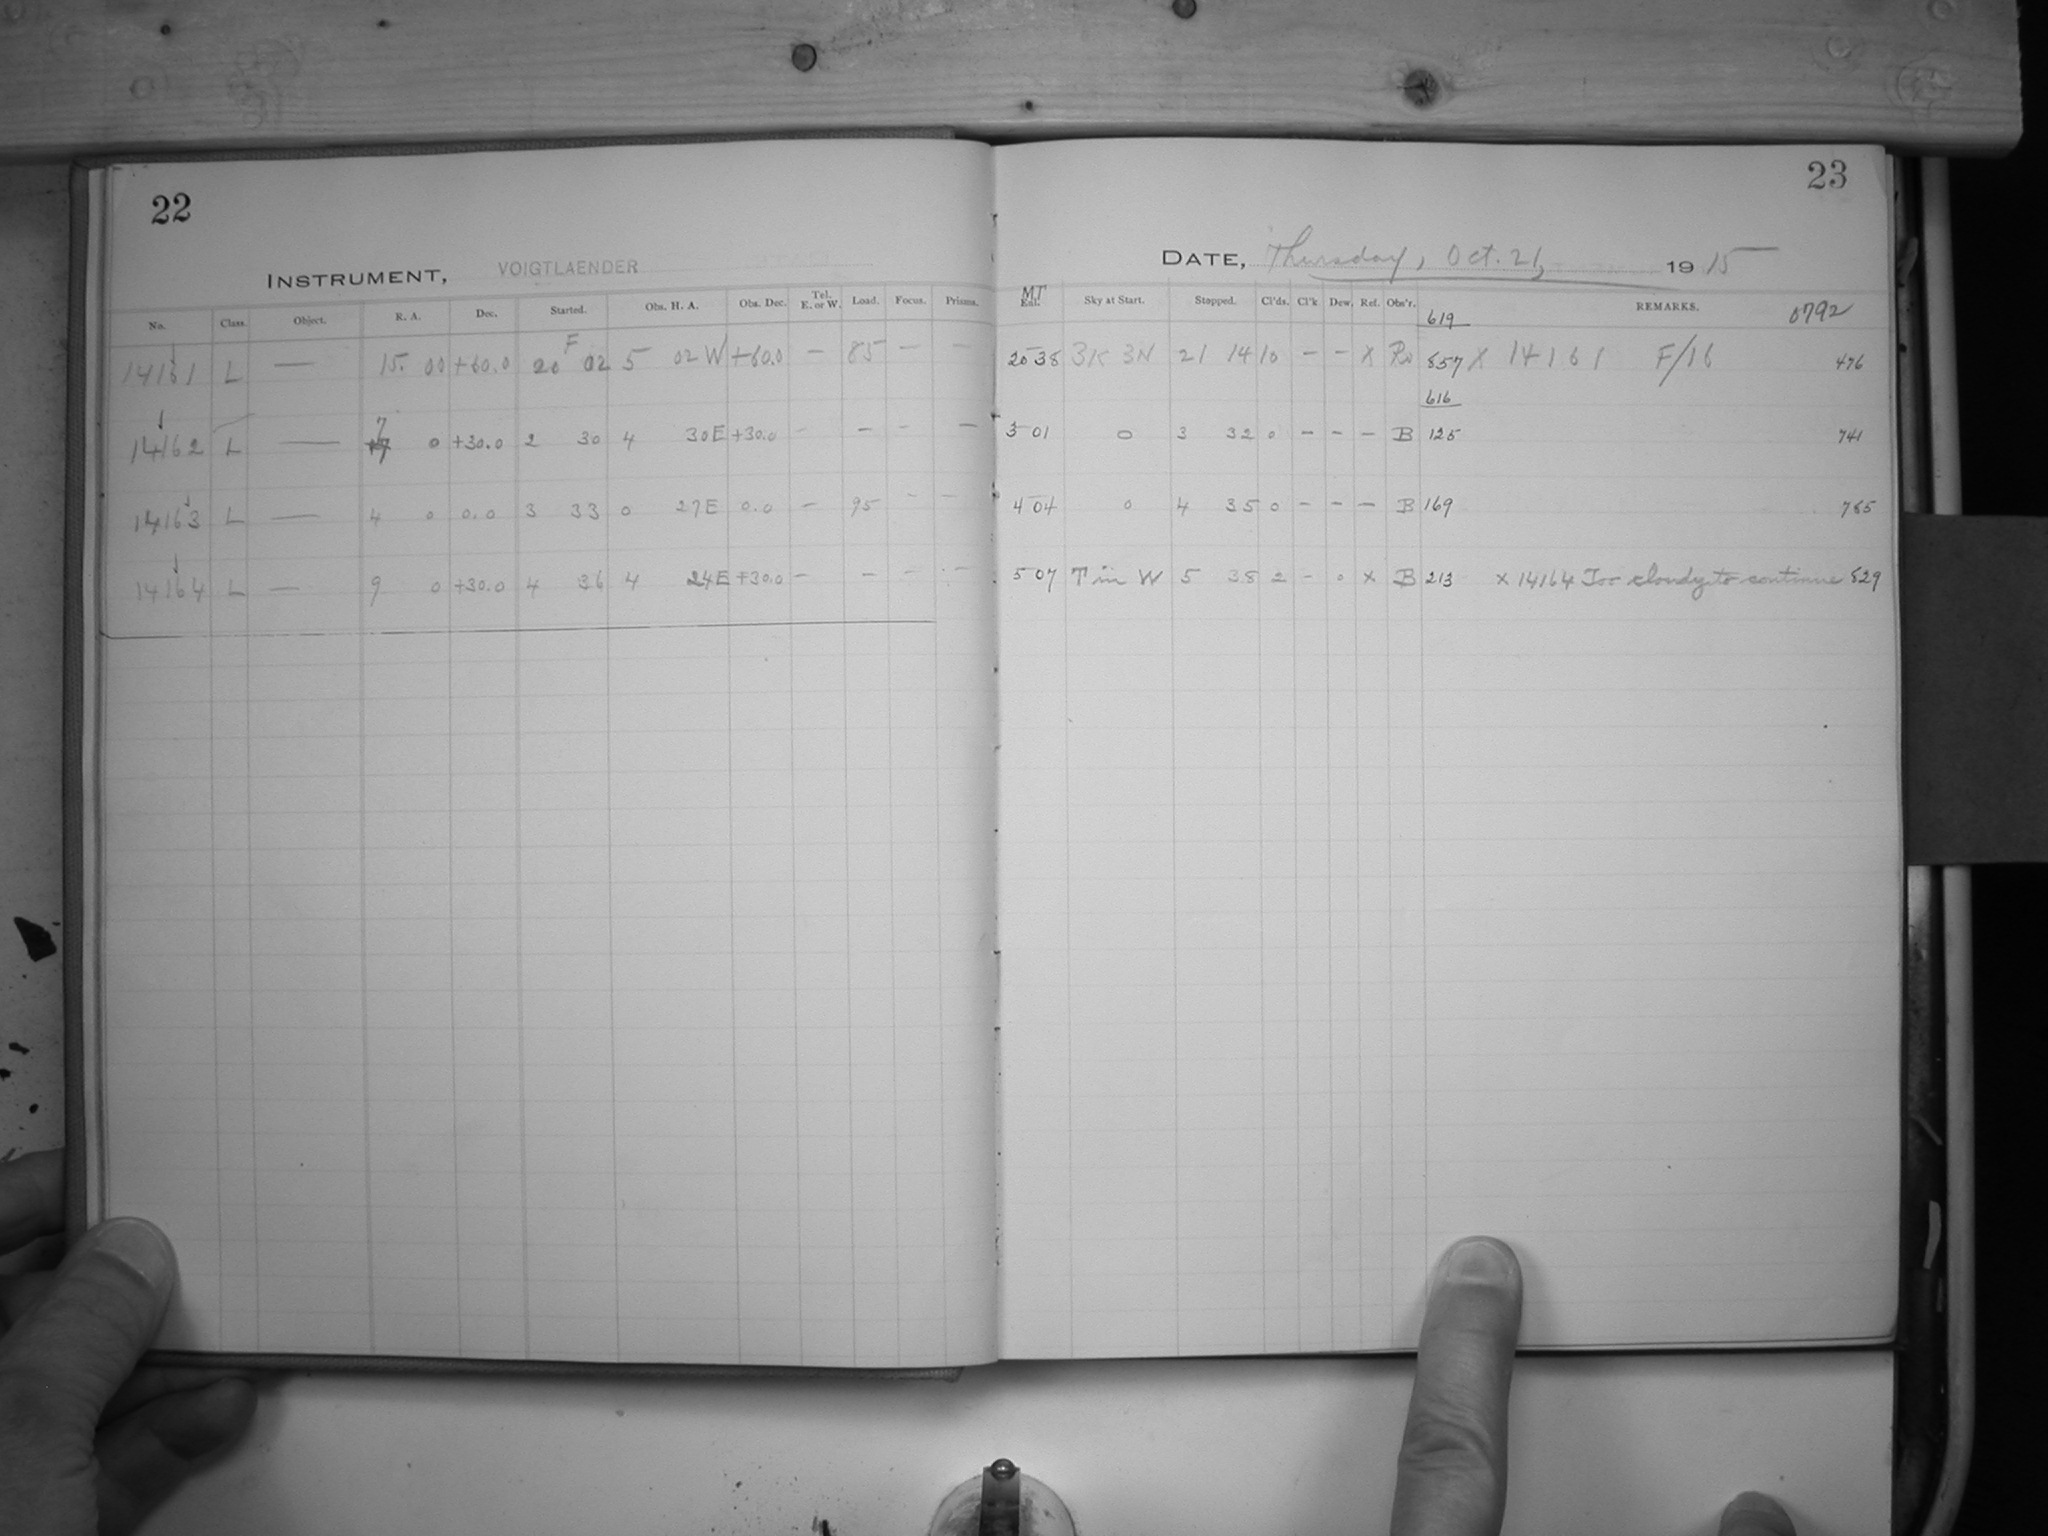 22
23
INSTRUMENT, VOIGTLAENDER
DATE, Thursday, Oct. 21, 1915
No. Class. Object. R. A. Dec. Started. Obs. H. A. Obs. Dec. Tel. E. or W. Load. Focus. Prisms. MT Sky at Start. Stopped. Cl'ds. Cl'k Dew. Rel. Obs'r. REMARKS. 0792
619
14161 L — 15. 00 +60.0 20 F 02 5 02 W +60.0 — 85 — — 20 38 3K 3N 21 14 10 — — X Ro 857 X 14161 F/16 476
616
14162 L — 7 0 +30.0 2 30 4 30E +30.0 - — - — 3 01 0 3 32 0 — — — B 125 741
14163 L — 4 0 0.0 3 33 0 27E 0.0 — 95 - — 4 04 0 4 35 0 — — — B 169 785
14164 L — 9 0 +30.0 4 36 4 24E +30.0 — — - - — 5 07 T in W 5 38 2 - 0 X B 213 X 14164 Too cloudy to continue 829